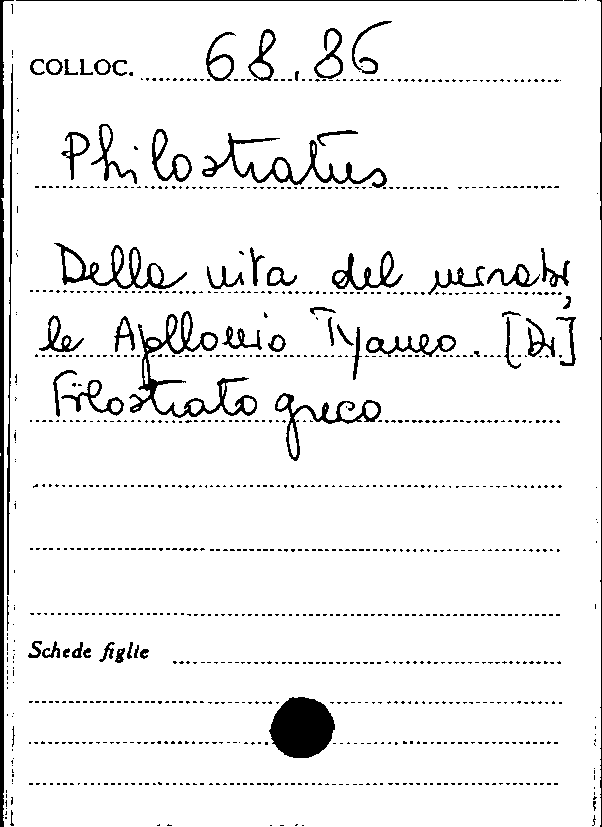 COLLOC. 68.86
Philostratus
Della vita del mirabi,
le Apllonio Tyaneo. [Di]
Filostrato greco
Schede figlie